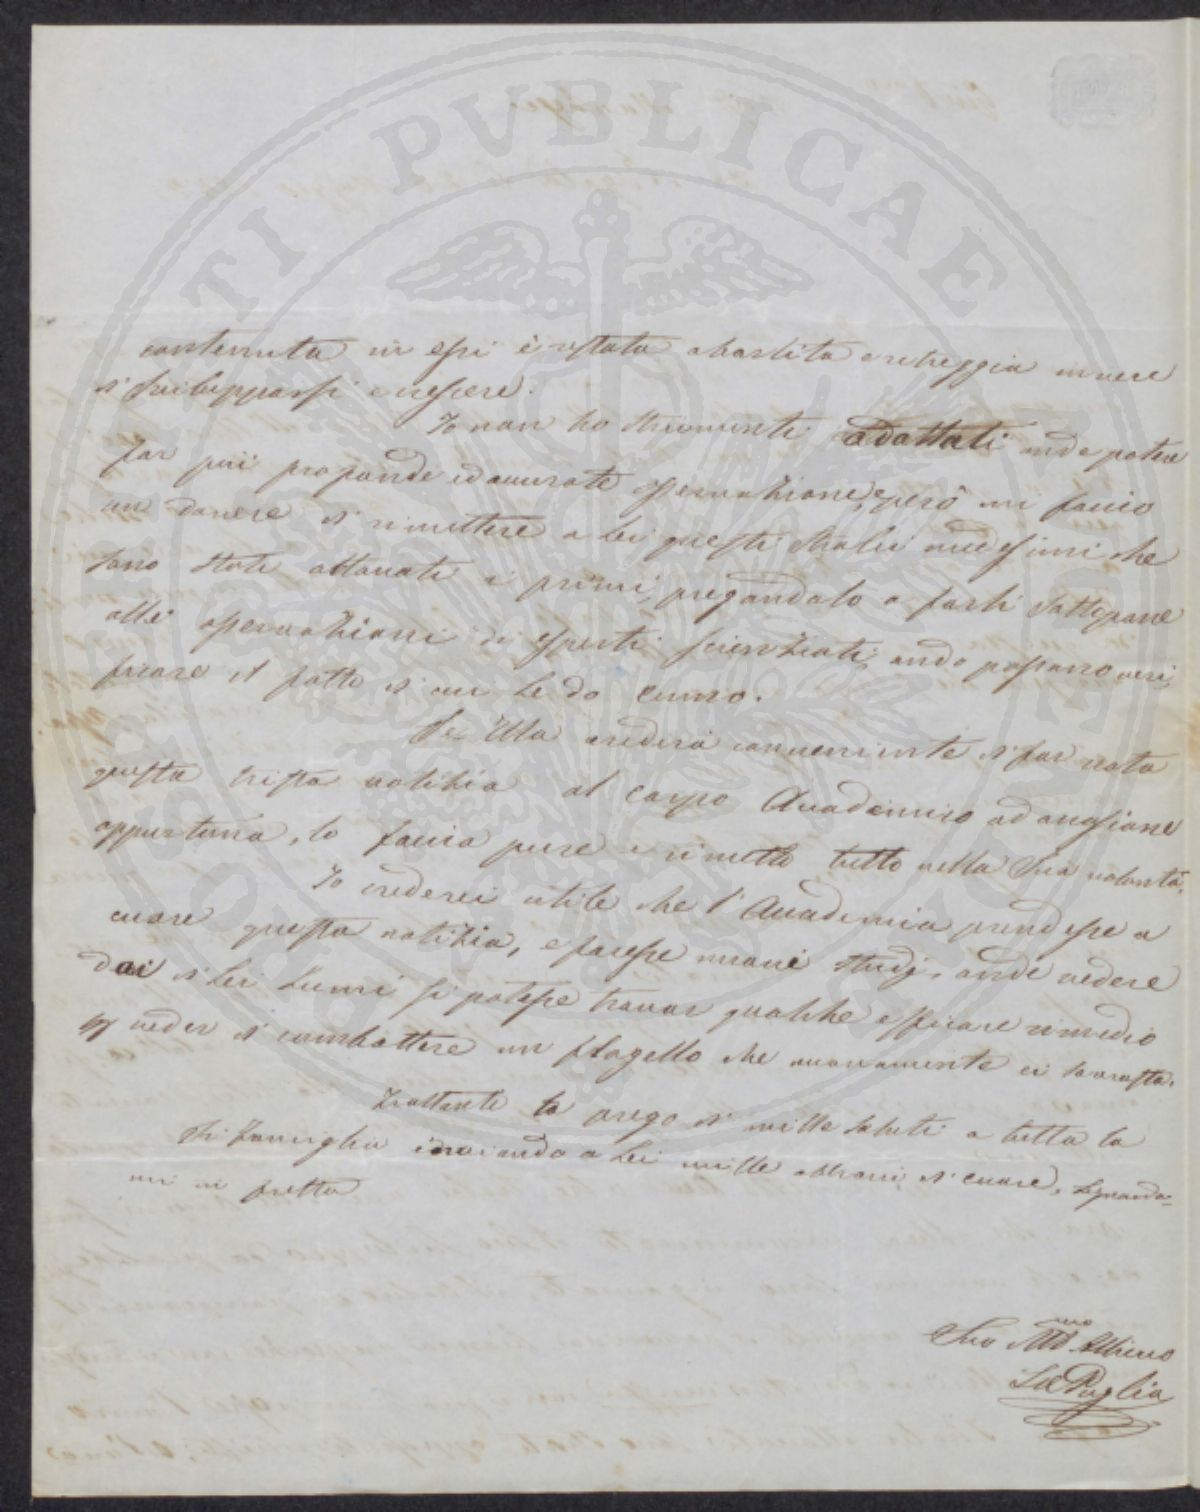 SENSVS SALVTI PVBLICAE
contenuta in essi è restata abortita
di svilupparsi e crescere.
Io non ho strumenti adattati onde potere
far più profonde ed accurate osservazione, però mi faccio
un dovere di rimettere a Lei questi tralci medesimi che
sono stati attaccati i primi, pregandolo a farli sottoporre
alle osservazioni di esperti scienziati, onde possano veri
ficare il fatto di cui Le do cenno.
Se Ella crederà conveniente di far nota
questa trista notizia al corpo Accademico ad
opportuna, lo faccia pure e rimetto tutto nella Sua volontà.
Io crederei utile che l'Accademia prendesse a
cuore questa notizia, e facesse nuovi studj, onde vedere
dai di Lei Lumi si potesse trovar qualche efficace rimedio
veder di combattere un flagello che nuovamente ci sovrasta.
Frattanto la prego di mille saluti a tutta la
di famiglia inviando a Lei mille di cuore,
mi in fretta
Suo Affmo
La Puglia